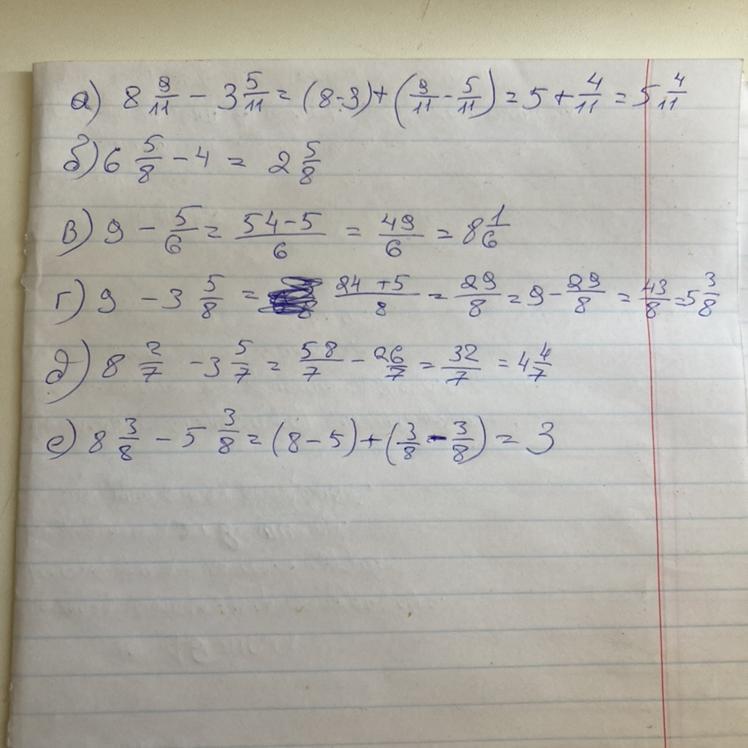 а) 8 9/11 - 3 5/11 = (8-3)+(9/11 - 5/11) = 5 + 4/11 = 5 4/11
б) 6 5/8 - 4 = 2 5/8
в) 9 - 5/6 = (54-5)/6 = 49/6 = 8 1/6
г) 9 - 3 5/8 = (24+5)/8 = 29/8 = 9 - 29/8 = 43/8 = 5 3/8
д) 8 2/7 - 3 5/7 = 58/7 - 26/7 = 32/7 = 4 4/7
е) 8 3/8 - 5 3/8 = (8-5)+(3/8 - 3/8) = 3